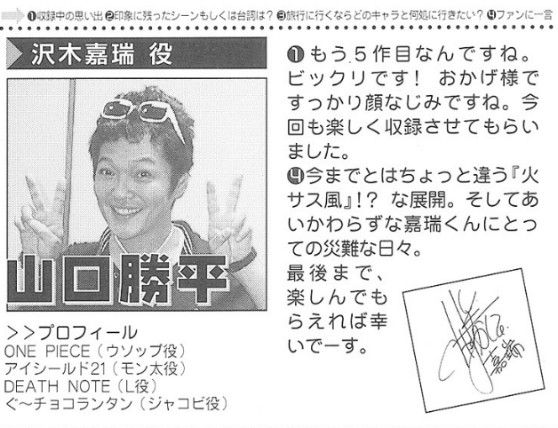 ❶収録中の思い出 ❷印象に残ったシーンもしくは台詞は? ❸旅行に行くならどのキャラと何処に行きたい? ❹ファンに一言
沢木嘉瑞 役
山口勝平
>>プロフィール
ONE PIECE(ウソップ役)
アイシールド21(モン太役)
DEATH NOTE(L役)
ぐ～チョコランタン(ジャコビ役)
❶もう5作目なんですね。
ビックリです! おかげ様で
すっかり顔なじみですね。今
回も楽しく収録させてもらい
ました。
❹今までとはちょっと違う『火
サス風』!? な展開。そしてあ
いかわらずな嘉瑞くんにとっ
ての災難な日々。
最後まで、
楽しんでも
らえれば幸
いでーす。